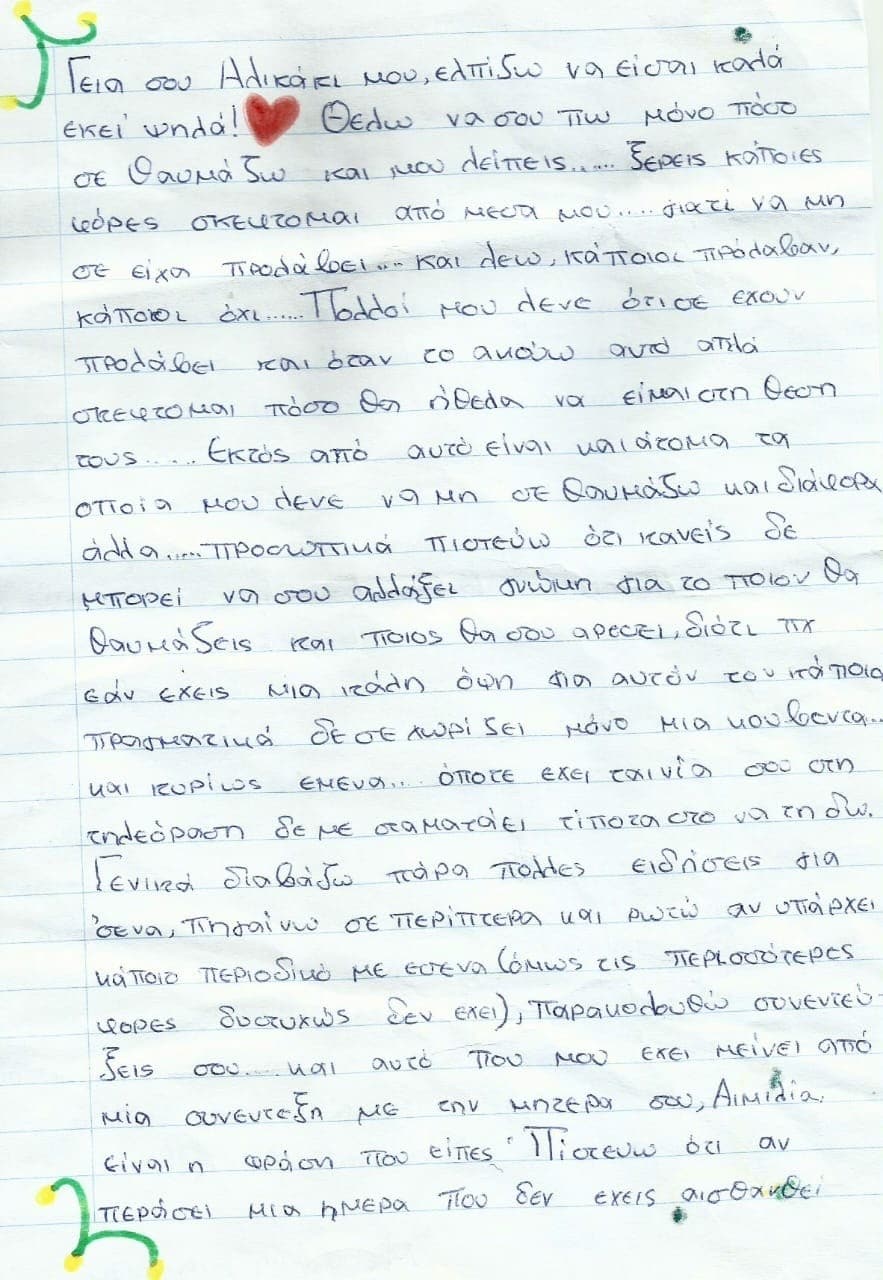 Γεια σου Αλικάκι μου, ελπίζω να είσαι καλά
εκεί ψηλά! Θελω να σου πω μόνο πόσο
σε θαυμάζω και μου λείπεις..... ξερεις κάποιες
φόρες σκεφτομαι από μεσα μου.... γιατί να μη
σε είχα προλάβει... και λεω, κάποιοι πρόλαβαν,
κάποιοι όχι...... Πολλοί μου λενε ότι σε εχουν
προλάβει και όταν το ακούω αυτό απλά
σκεφτομαι πόσο θα ήθελα να είμαι στη θεση
τους..... Εκτός από αυτό είναι και άτομα τα
οποία μου λενε να μη σε θαυμάζω και διάφορα
άλλα..... προσωπικά πιστεύω ότι κανείς δε
μπορεί να σου αλλάξει γνώμη για το ποιον θα
θαυμάζεις και ποιος θα σου αρεσει, διότι πχ
εάν εχεις μια κάλη όψη για αυτόν τον κάποιο
πραγματικά δε σε χωρίζει μόνο μια κουβεντα...
και κυρίως εμενα... όποτε εχει ταινία σου στη
τηλεόραση δε με σταματάει τίποτα στο να τη δω.
Γενικά διαβάζω πάρα πολλες ειδήσεις για
σενα, πηγαίνω σε περίπτερα και ρωτώ αν υπάρχει
κάποιο περιοδικό με εσενα (όμως τις περισσότερες
φορες δυστυχώς δεν εχει), παρακολουθώ συνεντεύ-
ξεις σου.... και αυτό που μου εχει μείνει από
μία συνεντεξη με την μητερα σου, Αιμιλία.
είναι η φράση που είπες " Πιστευω ότι αν
περάσει μια ημερα που δεν εχεις αισθανθεί